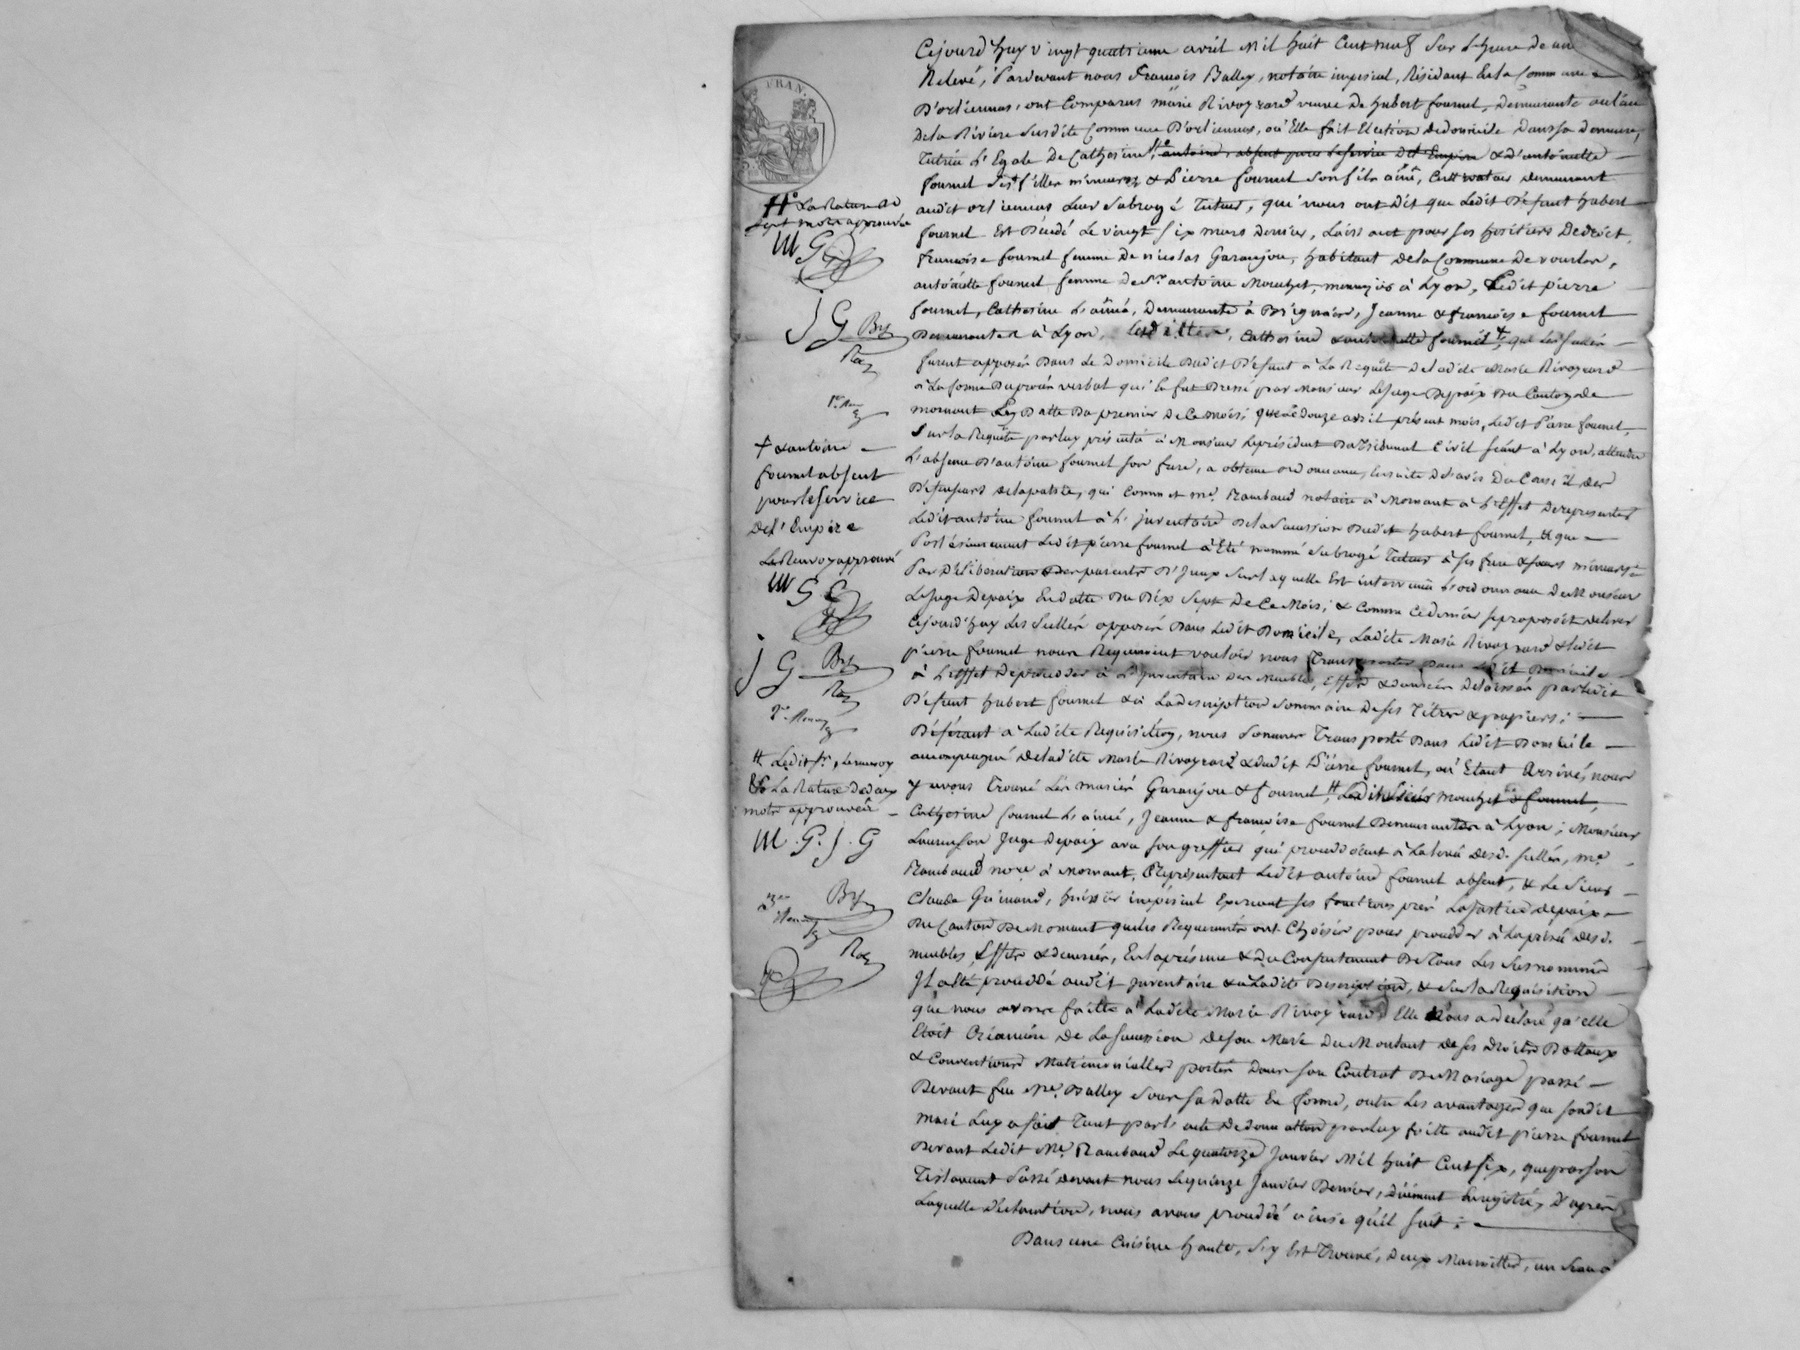 Cejourd'huy vingt quatrieme avril mil huit Cent neuf sur l'heure de un
Relevé, Pardevant nous François Balley, notaire imperial, Résidant En la Commune
D'orlienas, ont Comparus marie Rivoyrard veuve De hubert fournel, Demeurante au lieu
de la Riviere Susdite Commune D'orlienas, où Elle fait Election dedomicile Dans sa demeure,
Tutrice L'Egale De Catherine, antoine, absent pour le service de l'Empire & d'antoinette
fournel Ses filles mineures & Pierre fournel son fils ainé, Cultivateur demeurant
audit orlienas Leur Subrogé Tuteur, qui nous ont Dit que Ledit Défunt hubert
fournel Est Décédé Le vingt six mars Dernier, Laissant pour ses heritiers De droit,
françoise fournel femme De nicolas Garanjou, habitant de la Commune De vourles,
antoinette fournel femme de Sr antoine Mouchet, menuzier à Lyon, Ledit pierre
fournel, Catherine L'ainée, Demeurante à Brignais, Jeanne & françoise fournel
Demeurantes à Lyon, Catherine & antoinette fournel, que les scellés
furent apposés Dans Le Domicile Dudit Défunt à La Requête De ladite Marie Rivoyrard
à La forme Du procès verbal qui en fut Dressé par Monsieur Le Juge De paix Du Canton de
mornant En Datte Du premier De Ce mois, que le Douze avril présent mois, Ledit Pierre fournel,
Sur la Requête par luy présentée à Monsieur Le président Du Tribunal Civil séant à Lyon, attendu
L'absence D'antoine fournel son frere, a obtenu ordonnance, Ensuite De l'avis Du Conseil des
Défenseurs de la patrie, qui Commet me. Rambaud notaire à Mornant à L'Effet De représenter
Ledit antoine fournel à L'inventaire De la Succession Dudit hubert fournel, & que
Postérieurement Ledit pierre fournel à Eté nommé Subrogé Tuteur à ses frere & sœurs mineurs
Par Déliberation Des parents D'Iceux Sur laquelle Est intervenue L'ordonnance De Monsieur
Le Juge De paix En datte Du Dix Sept De Ce Mois; & Comme Ce dernier se proposoit De lever
Cejourd'huy Les Scellés apposés Dans Ledit Domicile, Ladite Marie Rivoyrard & ledit
pierre fournel nous Requeroient vouloir nous Transporter Dans Ledit Domicile
à L'Effet De procéder à L'inventaire Des Meubles, Effets & denrées Délaissés par ledit
Défunt hubert fournel & à La description Sommaire De ses Titres & papiers;
Déférant à Ladite Requisition, nous Sommes Transporté Dans Ledit Domicile
accompagné De ladite Marie Rivoyrard & dudit Pierre fournel, où Etant Arrivés, nous
y avons Trouvé Les mariés Garanjou & fournel, Mouchet & fournel,
Catherine fournel L'ainée, Jeanne & françoise fournel Demeurantes à Lyon; Monsieur
Juge De paix avec son greffier qui procedoient à La levée Desd. scellés, me.
Rambaud nore à Mornant, Représentant Ledit antoine fournel absent, & Le Sieur
Claude Guinand, huissier impérial Exerçant ses fonctions près La Justice de paix
Du Canton De Mornant que les Requerants ont Choisis pour procedder à La prisée Desd.
meubles, Effets & denrées, En la présence & du Consentement De Tous Les Susnommés
Il a Eté proceddé audit inventaire & à Ladite Description, & Sur la Requisition
que nous avons faitte à Ladite Marie Rivoyrard, Elle Nous a déclaré qu'elle
Etoit Créanciere De La Succession De son Mari Du Montant de ses droits Dottaux
& Conventions Matrimonialles portés Dans son Contrat De Mariage passé
Devant feu Me. Balley Sous sa Datte En forme, outre Les avantages que sondit
mari luy a fait Tant par L'acte De donnation par luy faitte audit pierre fournel
Devant Ledit Me. Rambaud Le quatorze Janvier Mil huit Cent six, que par son
Testament Passé devant nous Le quinze Janvier Dernier, Dûement Enregistrés, D'après
Laquelle Déclaration, nous avons proceddé ainsi qu'il suit;
Dans une Cuisine haute, s'y Est Trouvé, Deux Marmittes, un Seau
FRAN.
La Rature de
sept mots approuvée
M G
J G By
Ra
1er Ren
+ & antoine
fournel absent
pour le service
de L'Empire
Le Renvoy approuvé
M G
J G By
Ra
2e Renvoy
Ledit Sr, Le renvoy
& La Rature de deux
mots approuvés
M. G. J. G
By
3e Renvoy
Ra